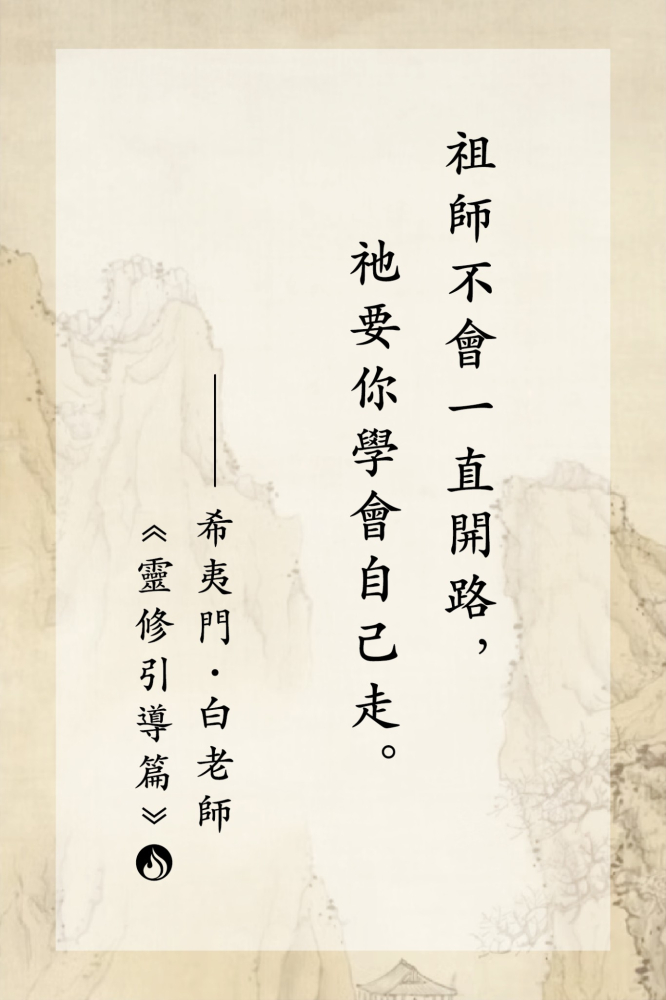 祖師不會一直開路，
祂要你學會自己走。
——希夷門·白老師
《靈修引導篇》